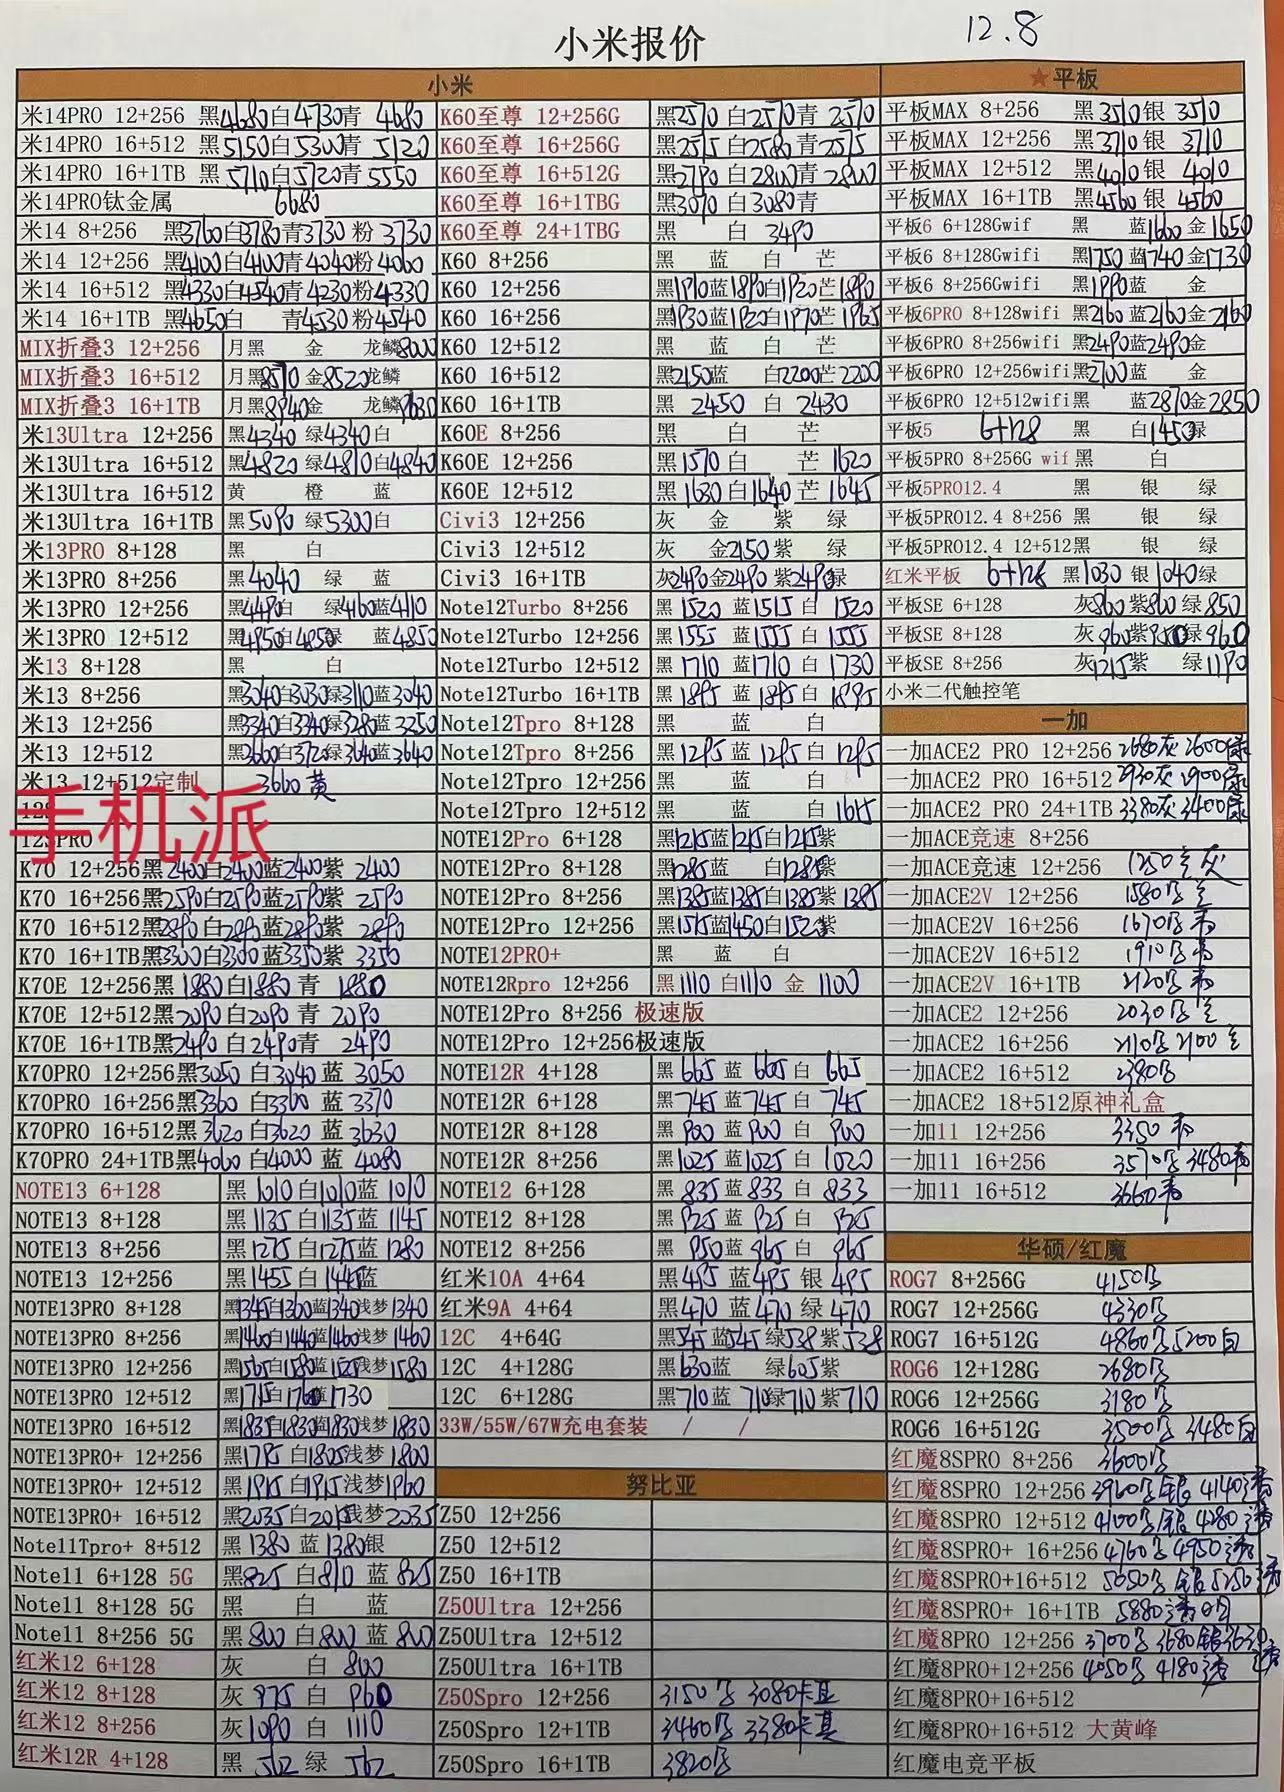 小米报价
12.8
小米
米14PRO 12+256 黑4680白4730青 4680
米14PRO 16+512 黑5150白5300青 5120
米14PRO 16+1TB 黑5710白5720青5550
米14PRO钛金属 6680
米14 8+256 黑3760白3780青3730粉3730
米14 12+256 黑4100白4100青4040粉4060
米14 16+512 黑4330白4540青4230粉4330
米14 16+1TB 黑4650白 青4530粉4540
MIX折叠3 12+256 月黑 金 龙鳞8000
MIX折叠3 16+512 月黑8570金8520龙鳞
MIX折叠3 16+1TB 月黑8940金 龙鳞9630
米13Ultra 12+256 黑4340 绿4340白
米13Ultra 16+512 黑4820 绿4810白4840
米13Ultra 16+512 黄 橙 蓝
米13Ultra 16+1TB 黑5090 绿5300白
米13PRO 8+128 黑 白
米13PRO 8+256 黑4040 绿 蓝
米13PRO 12+256 黑4490白 绿4160蓝4110
米13PRO 12+512 黑4950白4850绿 蓝4850
米13 8+128 黑 白
米13 8+256 黑3040白3030绿3110蓝3040
米13 12+256 黑3340白3340绿3280蓝3250
米13 12+512 黑3660白3720绿3640蓝3640
米13 12+512定制 3660黄
手机派
12S
12SPRO
K70 12+256黑2400白2400蓝2400紫 2400
K70 16+256黑2590白2590蓝2590紫 2590
K70 16+512黑2890白2890蓝2890紫 2890
K70 16+1TB黑3300白3300蓝3350紫 3350
K70E 12+256黑 1880白1880 青 1880
K70E 12+512黑2090白2090 青 2090
K70E 16+1TB黑2490 白2490青 2490
K70PRO 12+256黑3050 白3040 蓝 3050
K70PRO 16+256黑3360 白3360 蓝 3370
K70PRO 16+512黑3620 白3620 蓝 3630
K70PRO 24+1TB黑4060 白4000 蓝 4080
NOTE13 6+128 黑 1010白1010蓝 1010
NOTE13 8+128 黑1135 白1135蓝 1145
NOTE13 8+256 黑1275 白1275蓝 1280
NOTE13 12+256 黑1455 白1445蓝
NOTE13PRO 8+128 黑1345白1360蓝1340浅梦1340
NOTE13PRO 8+256 黑1460白1440蓝1460浅梦1460
NOTE13PRO 12+256 黑1565白1580蓝1525浅梦1580
NOTE13PRO 12+512 黑1715白1760蓝1730
NOTE13PRO 16+512 黑1835白1830蓝1830浅梦1830
NOTE13PRO+ 12+256 黑1795 白1805浅梦1800
NOTE13PRO+ 12+512 黑1915白1915浅梦1960
NOTE13PRO+ 16+512 黑2035白2015浅梦2035
Note11Tpro+ 8+512 黑1380 蓝1380银
Note11 6+128 5G 黑825 白810 蓝825
Note11 8+128 5G 黑 白 蓝
Note11 8+256 5G 黑800白800 蓝800
红米12 6+128 灰 白 800
红米12 8+128 灰 975 白 960
红米12 8+256 灰1090 白 1110
红米12R 4+128 黑 562 绿 562
K60至尊 12+256G 黑2570 白2570青 2570
K60至尊 16+256G 黑2575 白2580青2575
K60至尊 16+512G 黑2790 白2800青2800
K60至尊 16+1TBG 黑3070 白3080青
K60至尊 24+1TBG 黑 白 3490
K60 8+256 黑 蓝 白 芒
K60 12+256 黑1910蓝1890白1920芒1890
K60 16+256 黑1930蓝1920白1970芒1965
K60 12+512 黑 蓝 白 芒
K60 16+512 黑2150蓝 白2200芒2200
K60 16+1TB 黑 2450 白 2430
K60E 8+256 黑 白 芒
K60E 12+256 黑1570白 芒 1620
K60E 12+512 黑1630白1640芒 1645
Civi3 12+256 灰 金 紫 绿
Civi3 12+512 灰 金2150紫 绿
Civi3 16+1TB 灰2490金2490 紫2490绿
Note12Turbo 8+256 黑 1520 蓝1515 白 1520
Note12Turbo 12+256 黑1555 蓝1555 白 1555
Note12Turbo 12+512 黑1710 蓝1710 白 1730
Note12Turbo 16+1TB 黑1895 蓝1895白 1895
Note12Tpro 8+128 黑 蓝 白
Note12Tpro 8+256 黑1295 蓝1295白1295
Note12Tpro 12+256 黑 蓝 白
Note12Tpro 12+512 黑 蓝 白1615
NOTE12Pro 6+128 黑1215蓝1215白1215紫
NOTE12Pro 8+128 黑1285蓝 白1285紫
NOTE12Pro 8+256 黑1385蓝1385白1385紫1385
NOTE12Pro 12+256 黑1515蓝1450白1520紫
NOTE12PRO+ 黑 蓝 白
NOTE12Rpro 12+256 黑1110 白1110 金 1100
NOTE12Pro 8+256 极速版
NOTE12Pro 12+256极速版
NOTE12R 4+128 黑665 蓝 665白 665
NOTE12R 6+128 黑745 蓝745 白 745
NOTE12R 8+128 黑900 蓝900 白 900
NOTE12R 8+256 黑1025 蓝1025 白 1020
NOTE12 6+128 黑835 蓝833 白 833
NOTE12 8+128 黑925 蓝925 白 925
NOTE12 8+256 黑 950蓝 965 白 965
红米10A 4+64 黑495 蓝495 银 495
红米9A 4+64 黑470 蓝470 绿 470
12C 4+64G 黑545 蓝545绿538紫538
12C 4+128G 黑630蓝 绿605紫
12C 6+128G 黑710蓝 710绿710紫710
33W/55W/67W充电套装 / /
努比亚
Z50 12+256
Z50 12+512
Z50 16+1TB
Z50Ultra 12+256
Z50Ultra 12+512
Z50Ultra 16+1TB
Z50Spro 12+256 3150 3080卡其
Z50Spro 12+1TB 3460 3380卡其
Z50Spro 16+1TB 3820
★平板
平板MAX 8+256 黑3510银 3510
平板MAX 12+256 黑3710银 3710
平板MAX 12+512 黑4010银 4010
平板MAX 16+1TB 黑4560银 4560
平板6 6+128Gwif 黑 蓝1600金1650
平板6 8+128Gwifi 黑1750蓝1740金1730
平板6 8+256Gwifi 黑1990蓝 金
平板6PRO 8+128wifi 黑2160蓝2160金2160
平板6PRO 8+256wifi 黑2490蓝2490金
平板6PRO 12+256wifi黑2700蓝 金
平板6PRO 12+512wifi黑 蓝2870金2850
平板5 6+128 黑 白1450绿
平板5PRO 8+256G wif 黑 白
平板5PRO12.4 黑 银 绿
平板5PRO12.4 8+256 黑 银 绿
平板5PRO12.4 12+512黑 银 绿
红米平板 6+128 黑1030 银1040绿
平板SE 6+128 灰860紫860绿 850
平板SE 8+128 灰960紫950绿960
平板SE 8+256 灰1215紫 绿1190
小米二代触控笔
一加
一加ACE2 PRO 12+256 2680灰 2600绿
一加ACE2 PRO 16+512 2930灰 2900绿
一加ACE2 PRO 24+1TB 3380灰3400绿
一加ACE竞速 8+256
一加ACE竞速 12+256 1250 灰
一加ACE2V 12+256 1580
一加ACE2V 16+256 1670
一加ACE2V 16+512 1910
一加ACE2V 16+1TB 2120
一加ACE2 12+256 2030
一加ACE2 16+256 2110 2100
一加ACE2 16+512 2380
一加ACE2 18+512原神礼盒
一加11 12+256 3350
一加11 16+256 3570 3480
一加11 16+512 3660
华硕/红魔
ROG7 8+256G 4150
ROG7 12+256G 4330
ROG7 16+512G 4860 5200白
ROG6 12+128G 2680
ROG6 12+256G 3180
ROG6 16+512G 3500 3480白
红魔8SPRO 8+256 3600
红魔8SPRO 12+256 3920 银 4140透
红魔8SPRO 12+512 4100 银 4280透
红魔8SPRO+ 16+256 4760 4950透
红魔8SPRO+16+512 5050 银5250透
红魔8SPRO+ 16+1TB 5880透
红魔8PRO 12+256 3700 3680银3630透
红魔8PRO+12+256 4050 4180透
红魔8PRO+16+512
红魔8PRO+16+512 大黄峰
红魔电竞平板